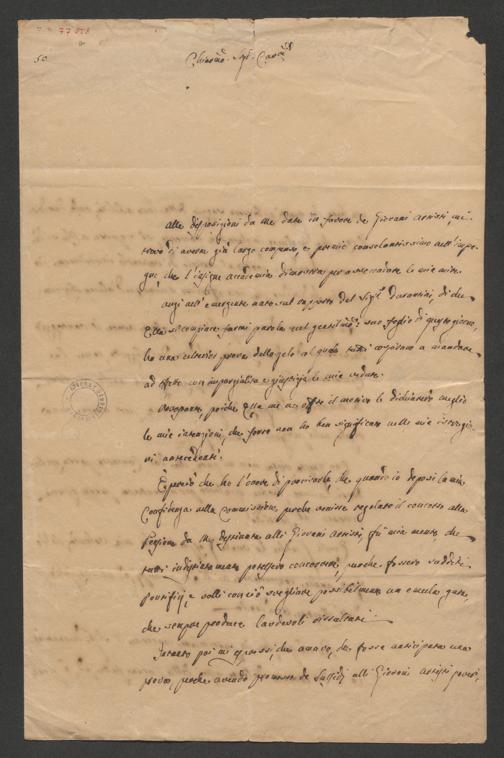 77 828
50
Chiarmo Sigr Cavre
Alle disposizioni da me date in favore de Giovani Artisti mi
trovo di avere già largo compenso, e premio consolantissimo nell'impe-
gno, che l'insigne Accademia dimostra per assecondare le mie mire.
Anzi nell'emergente nato sul rapporto del Sigr Durantini, di che
Ella si compiace farmi parola nel gentilmo suo foglio di questo giorno,
ho una ulteriore prova dello zelo al quale tutti cospirano a mandare
ad effetto con imparzialità e giustizia le mie vedute.
poichè Ella me ne offre il motivo le dichiarerò meglio
le mie intenzioni, che forse non ho ben significato nelle mie
antecedenti.
È perciò che ho l'onore di precisarle, che quando io deposi la mia
Confidenza nella Commissione, perchè venisse regolato il concorso alla
Pensione da me destinata alli Giovani Artisti, fù mia mente che
tutti indistintamente potessero concorrere, purchè fossero sudditi
Pontificj, e volli con ciò svegliare possibilmente un emula gara,
che sempre produce lodevoli risultati.
Intanto poi mi espressi, che amavo, che fosse anticipata una
prova, perchè avendo promesso de Sussidj alli Giovani Artisti poveri,